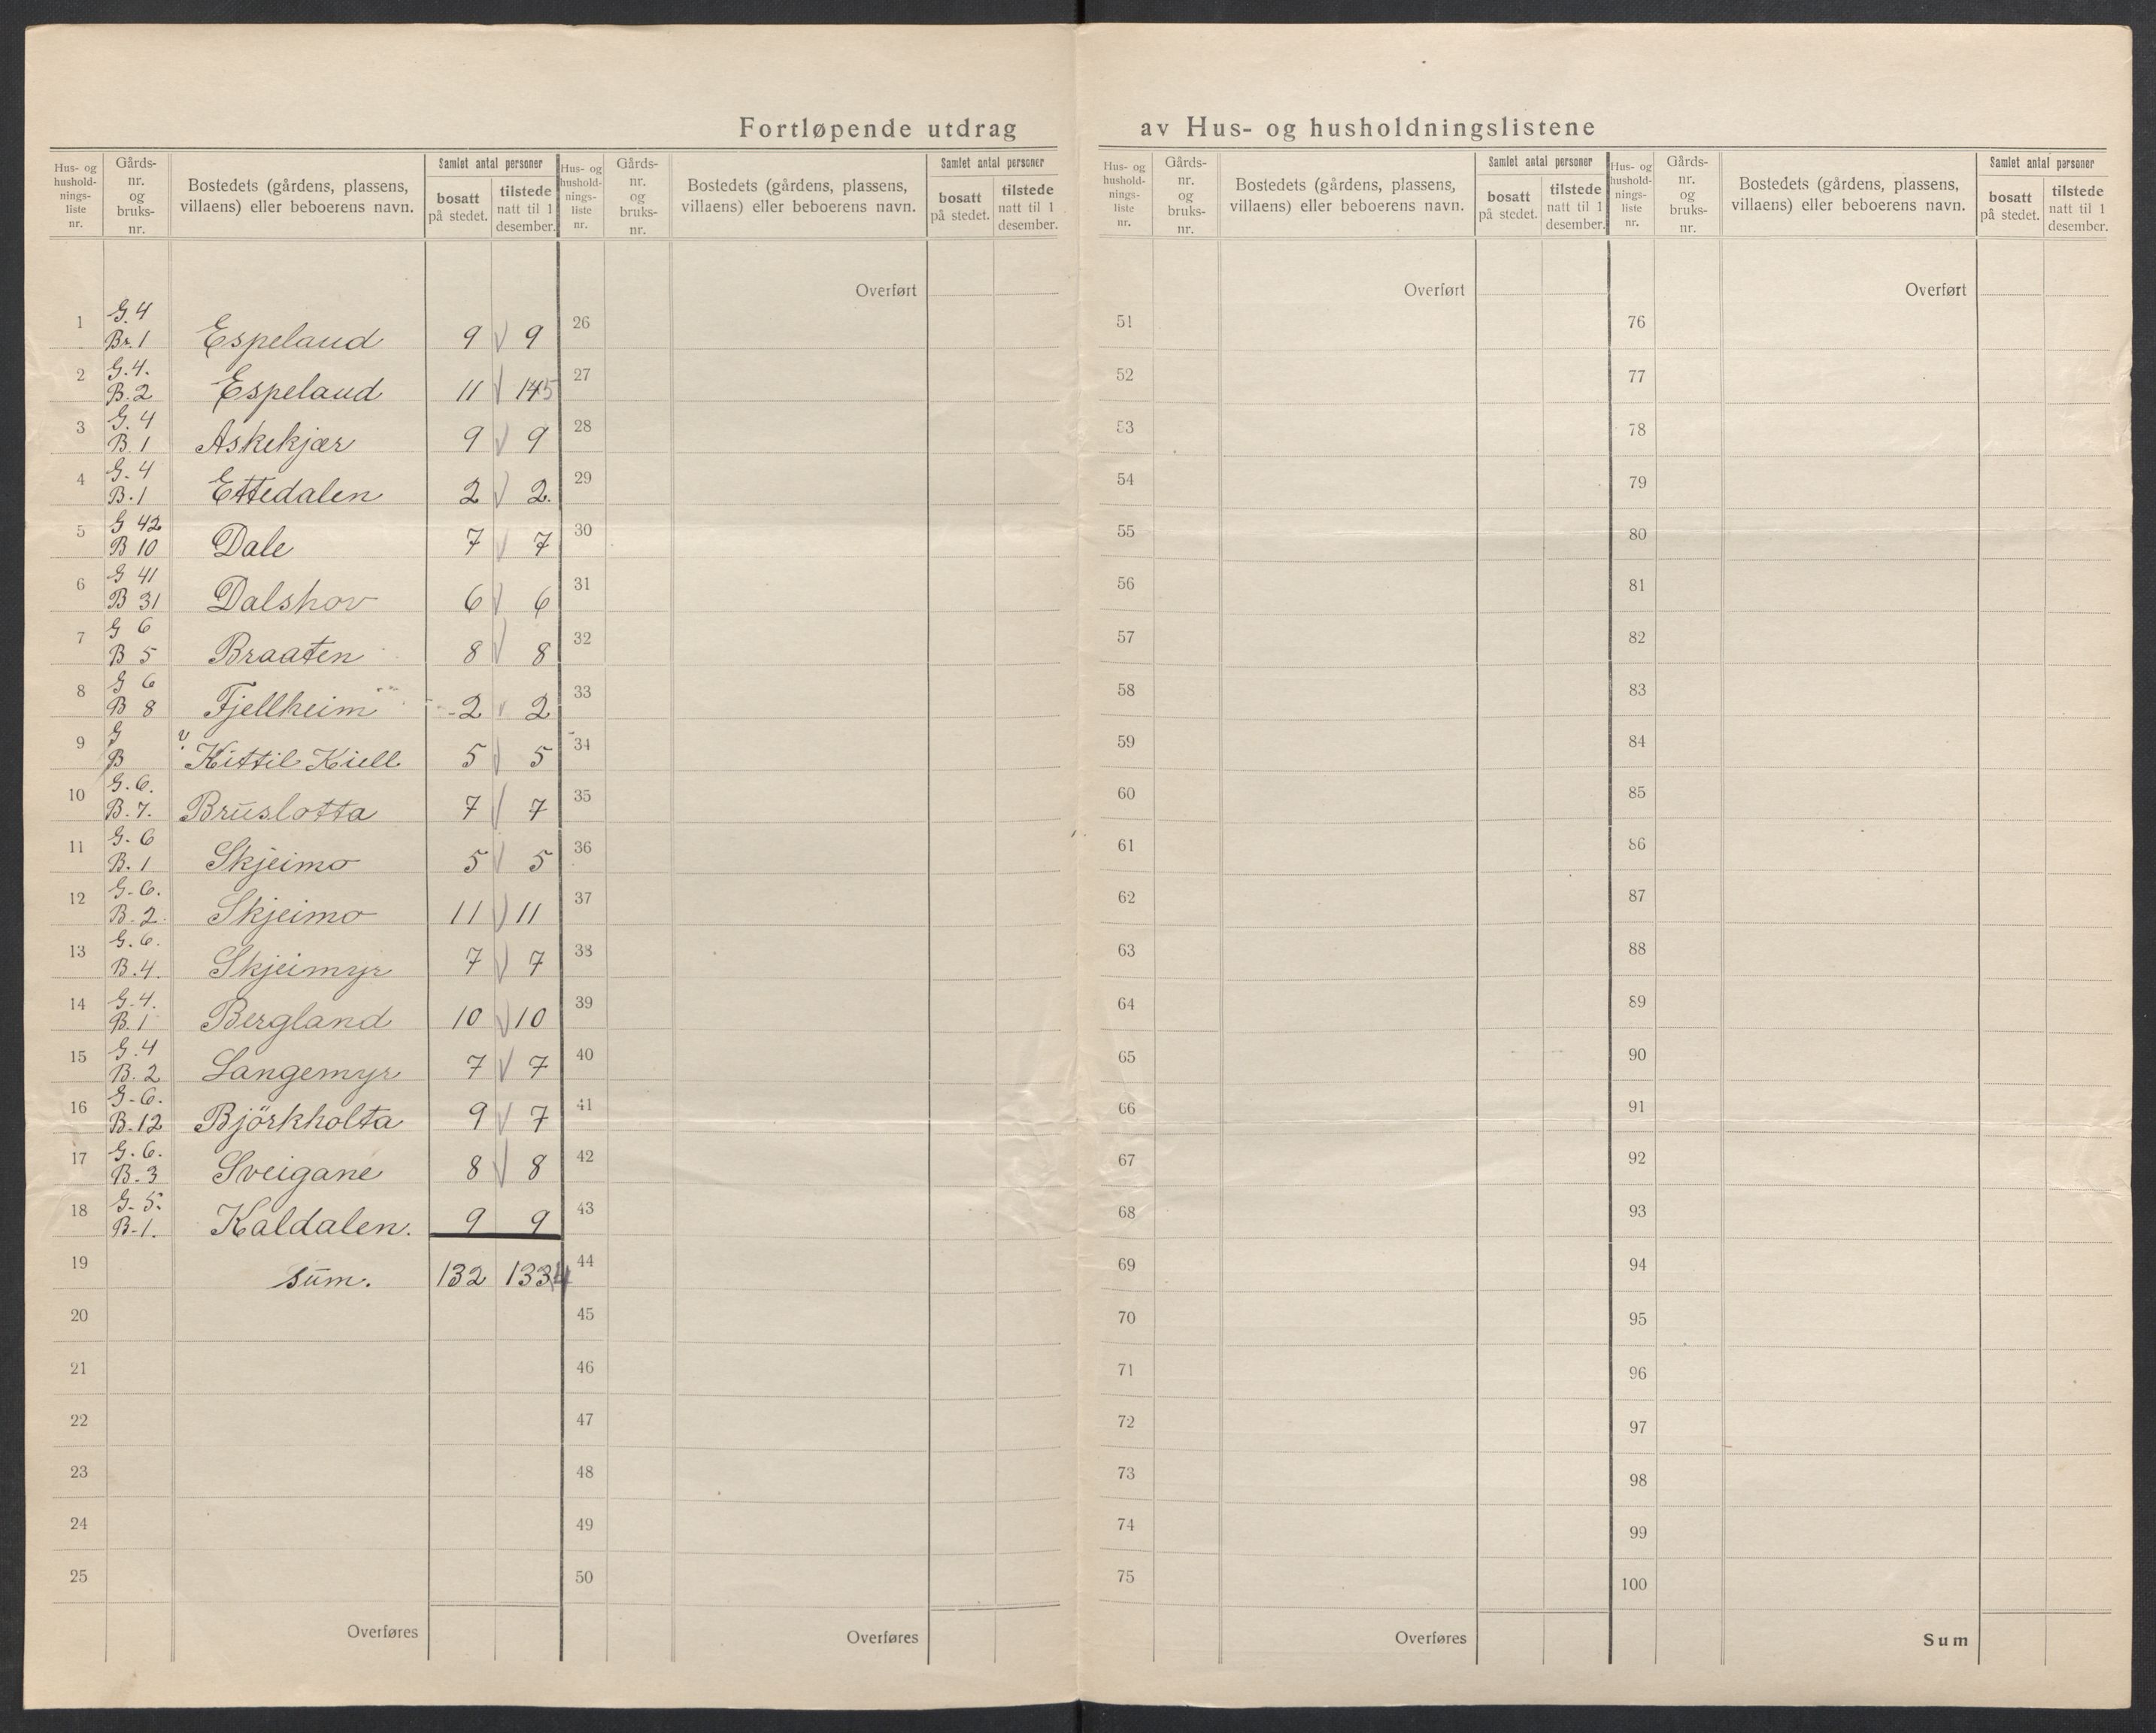 Fortløpende utdrag av Hus- og husholdningslistene
Hus- og hushold-nings-liste nr. Gårds-nr. og bruks-nr. Bostedets (gårdens, plassens, villaens) eller beboerens navn. Samlet antal personer bosatt på stedet. tilstede natt til 1 desember.
1 G.4 Br.1 Espeland 9 9
2 G.4. B.2 Espeland 11 145
3 G.4 B 1 Askekjær 9 9
4 G.4 B.1 Ettedalen 2 2.
5 G 42 B 10 Dale 7 7
6 G 41 B 31 Dalshov 6 6
7 G 6 B 5 Braaten 8 8
8 G 6 B 8 Fjellheim 2 2
9 G B Kittil Kiell 5 5
10 G.6. B.7. Bruslotta 7 7
11 G.6 B.1 Skjeimo 5 5
12 G.6. B.2. Skjeimo 11 11
13 G.6. B.4. Skjeimyr 7 7
14 G.4. B.1 Bergland 10 10
15 G.4 B.2 Langemyr 7 7
16 G-6. B-12 Björkholta 9 7
17 G.6. B-3 Sveigane 8 8
18 G-5. B-1. Kaldalen. 9 9
19 sum. 132 1334
20
21
22
23
24
25
Overføres
Hus- og hushold-nings-liste nr. Gårds-nr. og bruks-nr. Bostedets (gårdens, plassens, villaens) eller beboerens navn. Samlet antal personer bosatt på stedet. tilstede natt til 1 desember.
Overført
26
27
28
29
30
31
32
33
34
35
36
37
38
39
40
41
42
43
44
45
46
47
48
49
50
Overføres
Hus- og hushold-nings-liste nr. Gårds-nr. og bruks-nr. Bostedets (gårdens, plassens, villaens) eller beboerens navn. Samlet antal personer bosatt på stedet. tilstede natt til 1 desember.
Overført
51
52
53
54
55
56
57
58
59
60
61
62
63
64
65
66
67
68
69
70
71
72
73
74
75
Overføres
Hus- og hushold-nings-liste nr. Gårds-nr. og bruks-nr. Bostedets (gårdens, plassens, villaens) eller beboerens navn. Samlet antal personer bosatt på stedet. tilstede natt til 1 desember.
Overført
76
77
78
79
80
81
82
83
84
85
86
87
88
89
90
91
92
93
94
95
96
97
98
99
100
Sum